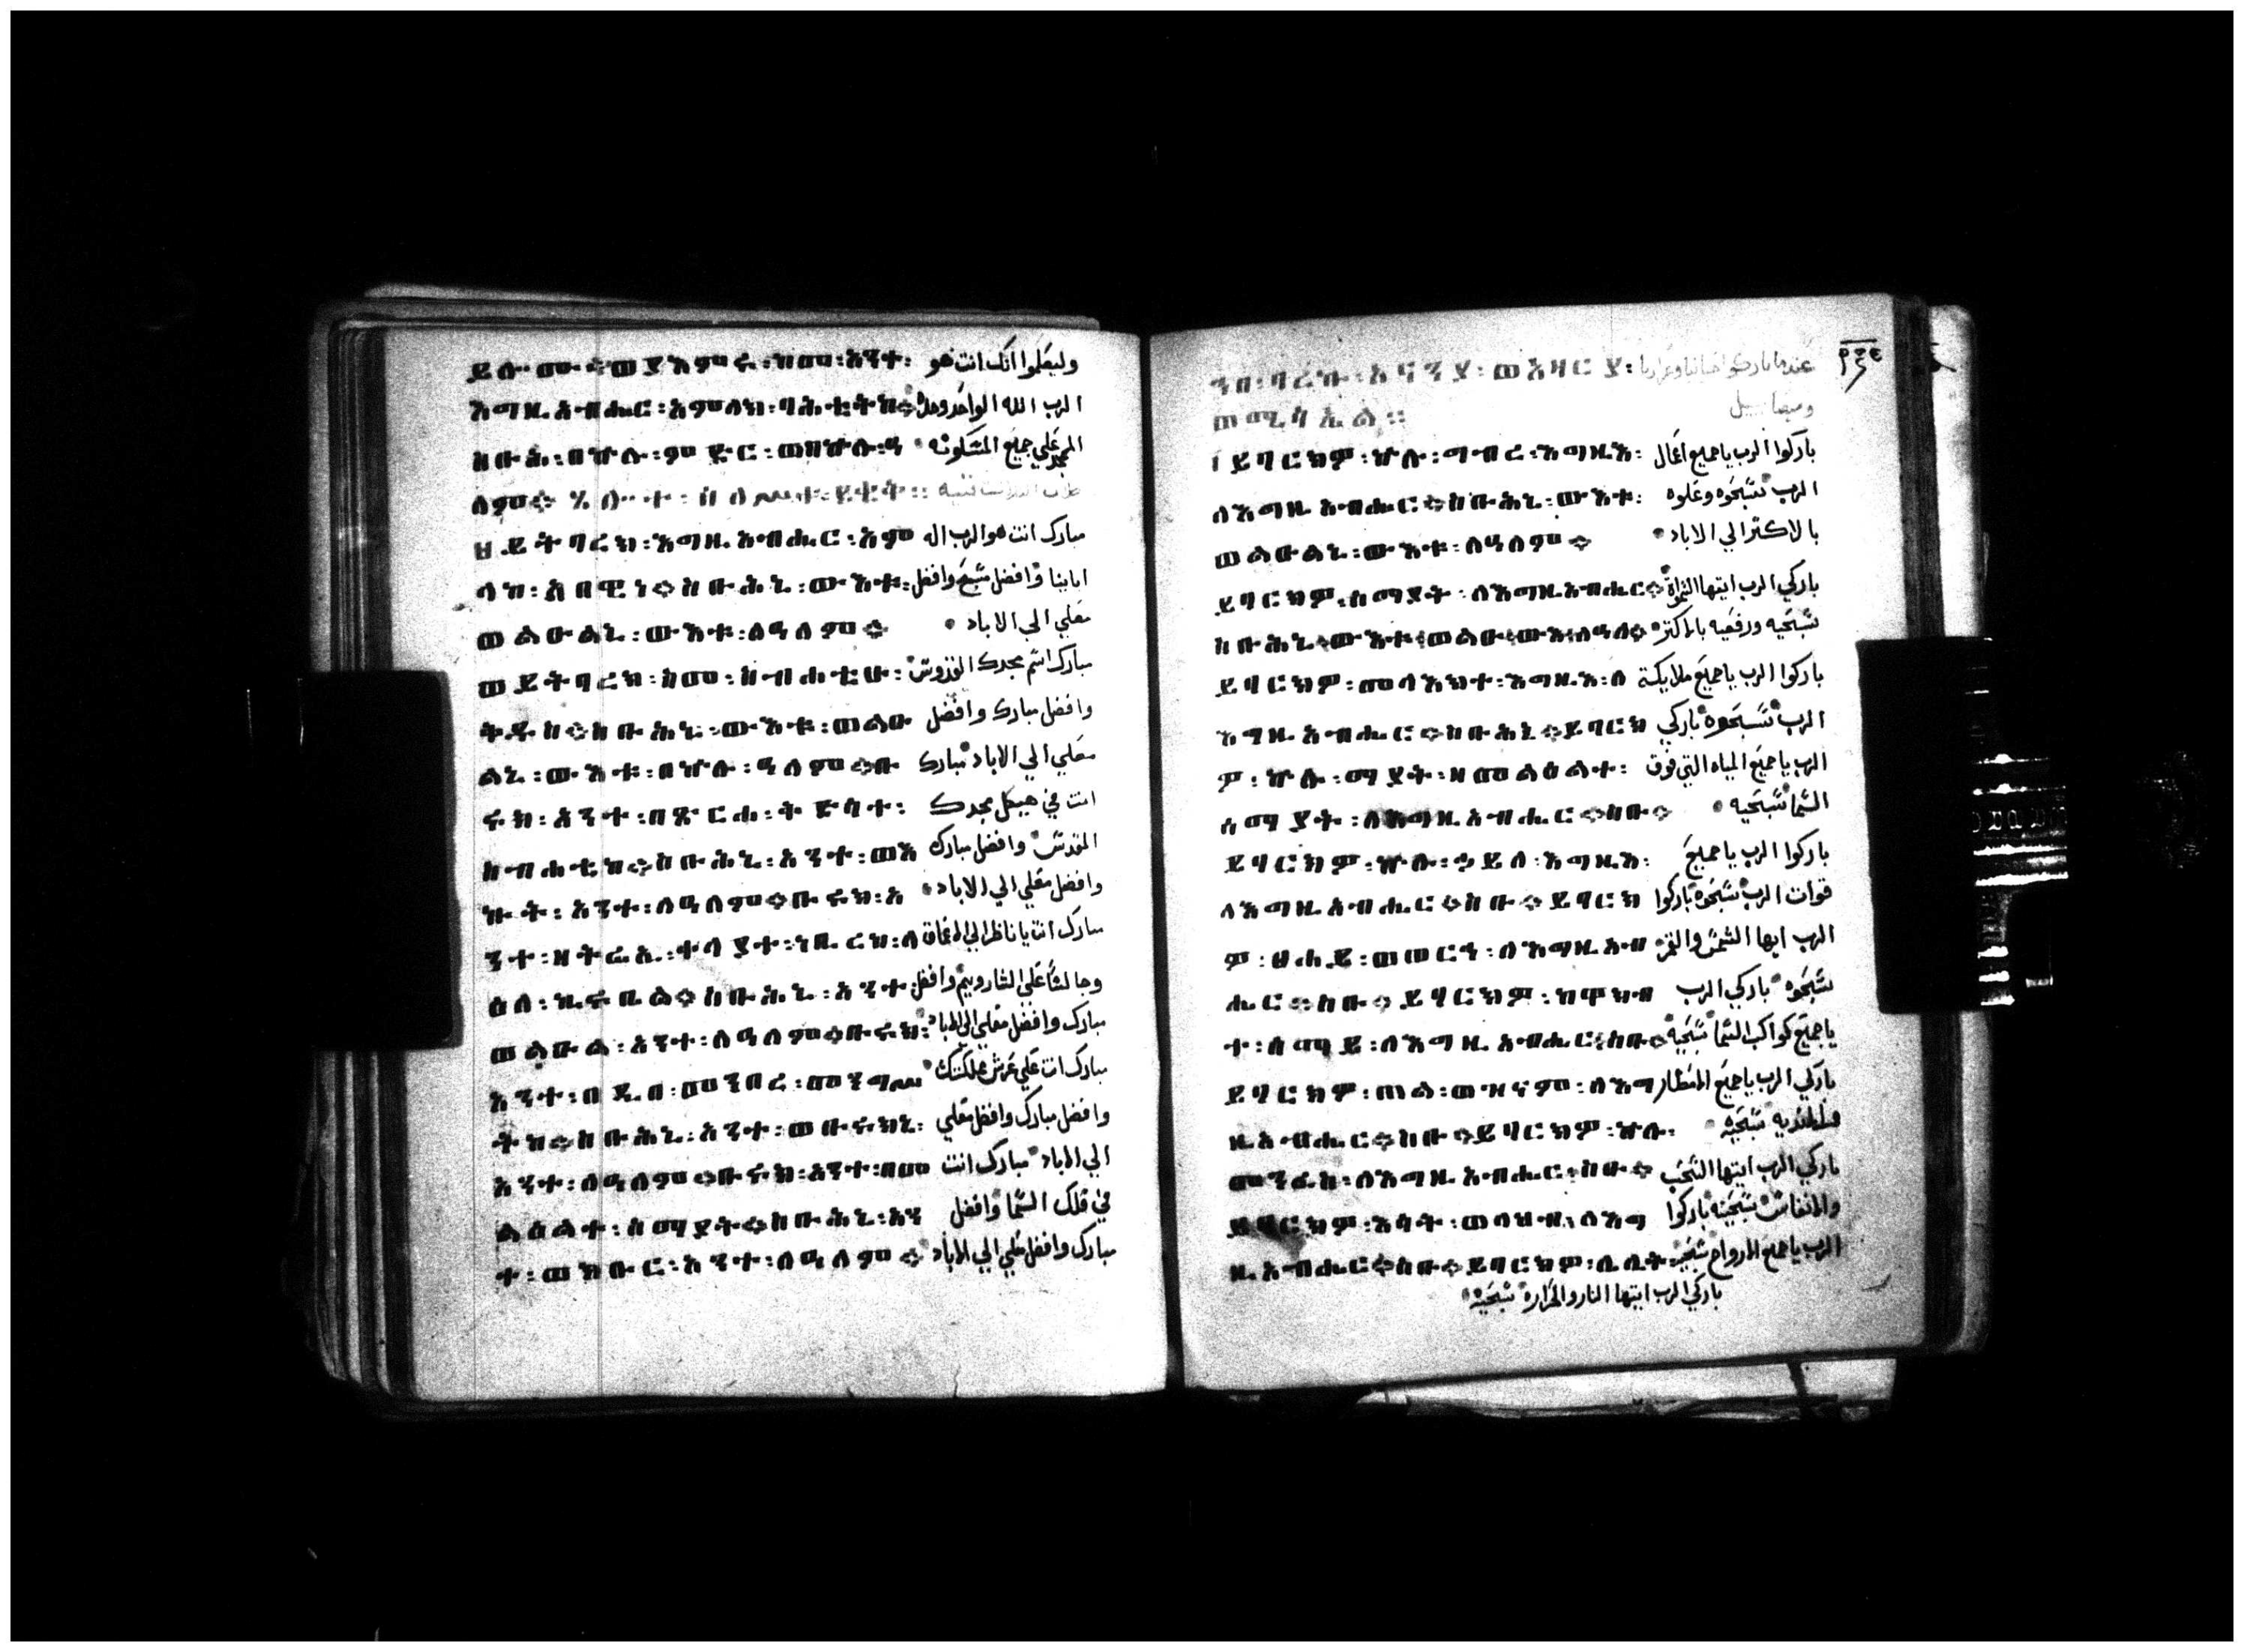 ወያእምሩ፡ከመ፡አንተ፡ وليعلموا انك انت هو
እግዚአብሔር፡አምላክ፡ባሕቲትከ። الرب الله الواحد وحدك
ስቡሕ፡በኵሉ፡ምድር፡ المجد علي جميع المسكونه
ለም።
ይትባረክ፡እግዚአብሔር፡አም مبارك انت هو الرب اله
ላከ፡አበዊነ።ስቡሕኒ፡ውእቱ፡ اباينا وافضل مسبح وافضل
ወልዑልኒ፡ውእቱ፡ለዓለም። معلي الي الاباد
ወይትባረክ፡ስመ፡ስብሐቲሁ፡ مبارك اسم مجدك القدوس
ቅዱስ።ስቡሕኒ፡ውእቱ፡ወልዑ وافضل مبارك وافضل
ልኒ፡ውእቱ፡በኵሉ፡ዓለም።ቡ معلي الي الاباد مبارك
ሩክ፡አንተ፡በጽርሐ፡ቅድሳተ፡ انت في هيكل مجدك
ስብሐቲከ።ስቡሕኒ፡አንተ፡ወእ المقدس وافضل مبارك
ኩት፡አንተ፡ለዓለም።ቡሩክ፡አ وافضل معلي الي الاباد
ንተ፡ዘትሬኢ፡ቀላያተ፡ነቢረከ፡ላ مبارك انت يا ناظر الي الاعماق
ዕለ፡ኪሩቤል።ስቡሕኒ፡አንተ፡ وجالسا علي الشاروبيم وافضل
ወልዑል፡አንተ፡ለዓለም።ቡሩክ፡ مبارك وافضل معلي الي الاباد
አንተ፡በዲበ፡መንበረ፡መንግሥ مبارك انت علي عرش مملكتك
ትከ።ስቡሕኒ፡አንተ፡ወቡሩክኒ፡ وافضل مبارك وافضل معلي
አንተ፡ለዓለም።ቡሩክ፡አንተ፡በመ الي الاباد مبارك انت
ልዕልተ፡ሰማያት።ስቡሕኒ፡አን في فلك السما وافضل
ተ፡ወክቡር፡አንተ፡ለዓለም። مبارك وافضل معلي الي الاباد
ወአዛርያ፡
ወሚሳኤል።
ይባርክዎ፡ኵሉ፡ግብረ፡እግዚእ፡ باركوا الرب يا جميع اعمال
ለእግዚአብሔር።ስቡሕኒ፡ውእቱ፡ الرب سبحوه وعلوه
ወልዑልኒ፡ውእቱ፡ለዓለም። بالاكثر الي الاباد
ይባርክዎ፡ሰማያት፡ለእግዚአብሔር። باركي الرب ايتها السموات
ስቡሕኒ፡ውእቱ፡ወልዑ፡ውእ፡ለዓለ። سبحيه ورفعيه بالاكثر
ይባርክዎ፡መላእክተ፡እግዚእ፡ለ باركوا الرب يا جميع ملايكة
እግዚአብሔር።ስቡሕኒ።ይባርክ الرب سبحوه باركي
ዎ፡ኵሉ፡ማያት፡ዘመልዕልተ፡ الرب يا جميع المياه التي فوق
ሰማያት፡ለእግዚአብሔር።ስቡ። السما سبحيه
ይባርክዎ፡ኵሉ፡ኃይለ፡እግዚእ፡ باركوا الرب يا جميع
ለእግዚአብሔር።ስቡ።ይባርክ قوات الرب سبحوه باركوا
ዎ፡ፀሐይ፡ወወርኅ፡ለእግዚአብ الرب ايها الشمس والقمر
ሔር።ስቡ።ይባርክዎ፡ከዋክብ سبحوه باركي الرب
ተ፡ሰማይ፡ለእግዚአብሔር፡ስቡ። يا جميع كواكب السما سبحيه
ይባርክዎ፡ጠል፡ወዝናም፡ለእግ باركي الرب يا جميع الامطار
ዚአብሔር።ስቡ።ይባርክዎ፡ኵሉ፡ والانديه سبحيه
መንፈስ፡ለእግዚአብሔር፡ስቡ። باركي الرب ايتها السحب
ይባርክዎ፡እሳት፡ወላህብ፡ለእግ سبحيه باركوا
ዚአብሔር።ስቡ።ይባርክዎ፡ሌሊት፡ الرب يا جميع الارواح
باركي الرب ايتها النار والحرارة سبحيه